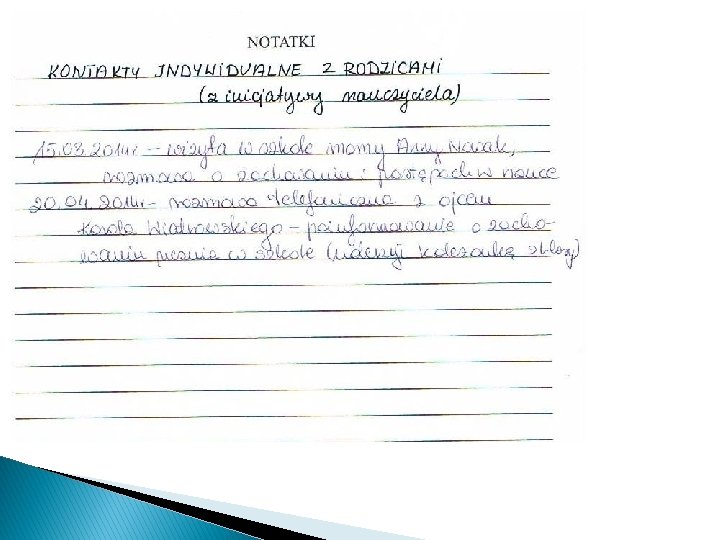 NOTATKI
KONTAKTY INDYWIDUALNE Z RODZICAMI
(z inicjatywy nauczyciela)
15.03.2014r. – wizyta w szkole mamy Anny Nowak,
rozmowa o zachowaniu i postępach w nauce
20.04.2014r. – rozmowa telefoniczna z ojcem
Karola Wiatrowskiego – poinformowanie o zacho-
waniu ucznia w szkole (uderzył koleżankę